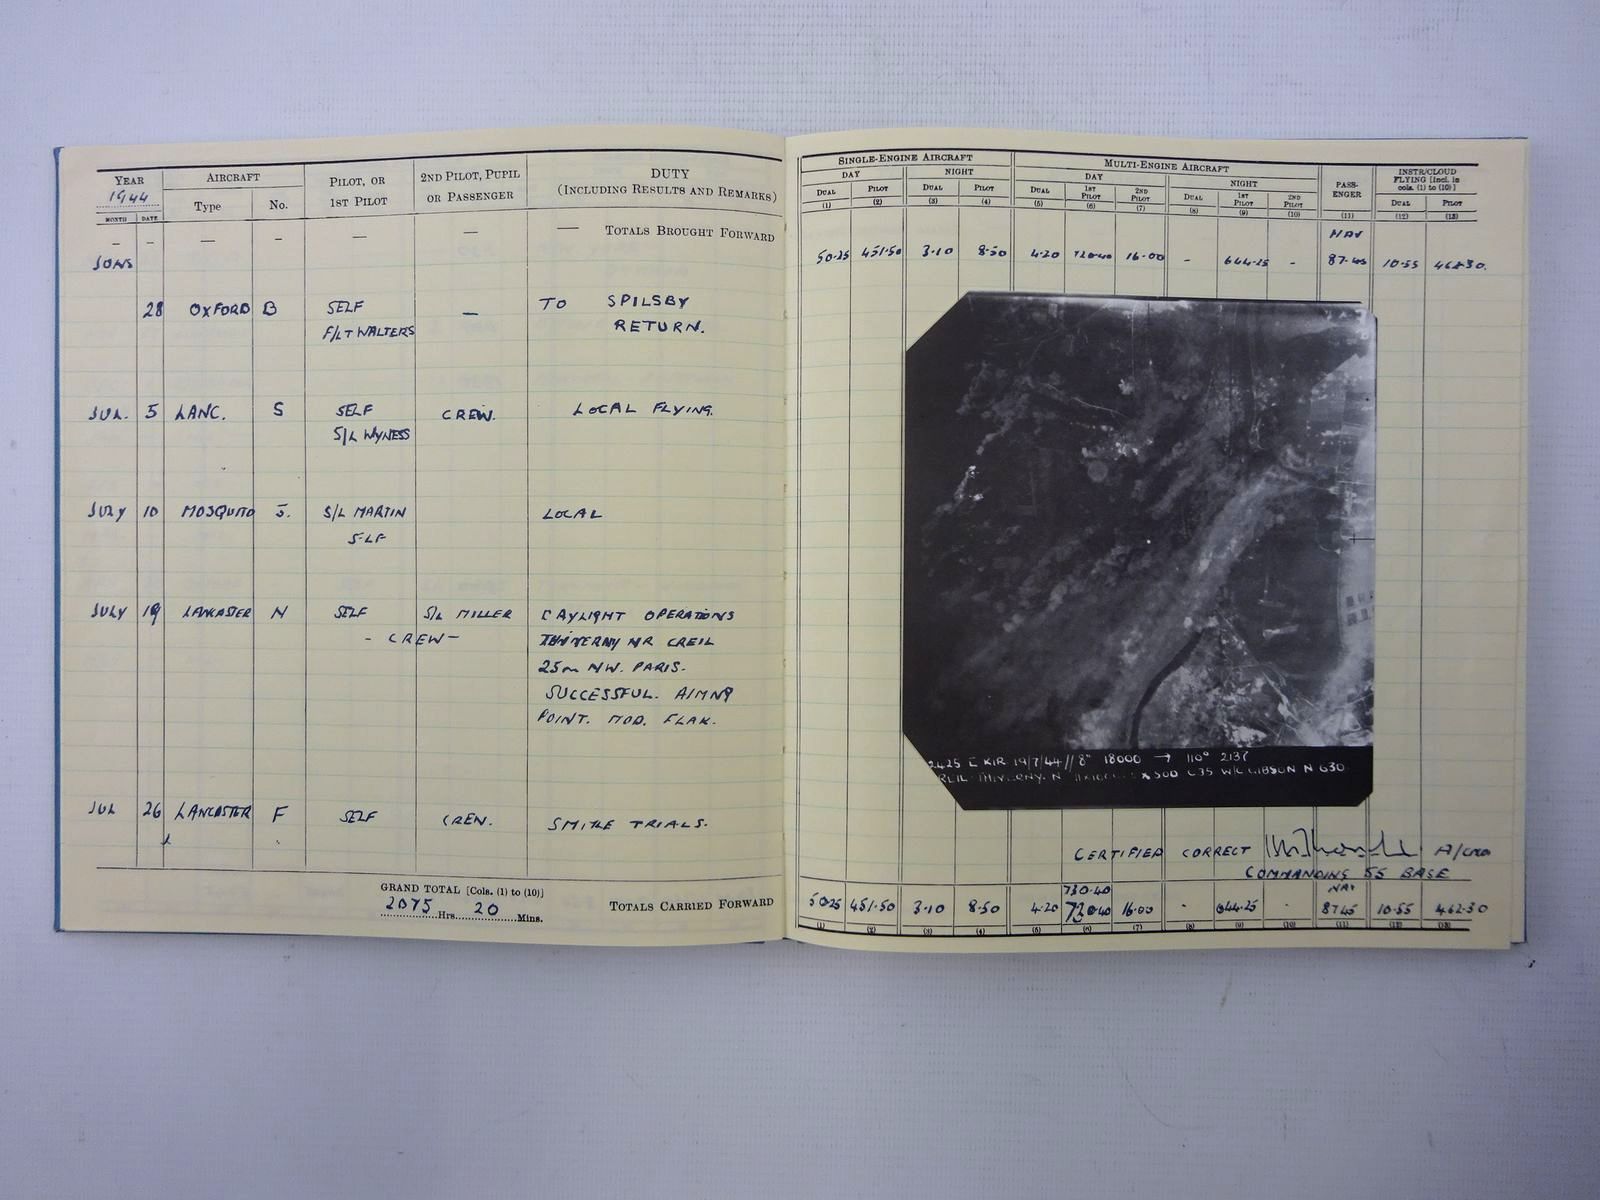 YEAR AIRCRAFT PILOT, OR 1ST PILOT 2ND PILOT, PUPIL OR PASSENGER DUTY (INCLUDING RESULTS AND REMARKS)
1944
MONTH DATE Type No.
— — — — — — — TOTALS BROUGHT FORWARD
JUNE
28 OXFORD B SELF — TO SPILSBY
F/LT WALTERS RETURN.
JUL. 5 LANC. S SELF CREW. LOCAL FLYING.
S/L WYNESS
JULY 10 MOSQUITO S/L MARTIN LOCAL
SELF
JULY 19 LANCASTER N SELF S/L MILLER DAYLIGHT OPERATIONS
- CREW - THIVERNY NR CREIL
25m NW. PARIS.
SUCCESSFUL. AIMNG
POINT. MOD. FLAK.
JUL 26 LANCASTER F SELF CREW. SMOKE TRIALS.
GRAND TOTAL [Cols. (1) to (10)]
2075 Hrs. 20 Mins.
TOTALS CARRIED FORWARD
SINGLE-ENGINE AIRCRAFT MULTI-ENGINE AIRCRAFT PASSENGER INSTR/CLOUD FLYING [Incl. in cols. (1) to (10)]
DAY NIGHT DAY NIGHT
DUAL PILOT DUAL PILOT DUAL 1ST PILOT 2ND PILOT DUAL 1ST PILOT 2ND PILOT DUAL PILOT
(1) (2) (3) (4) (5) (6) (7) (8) (9) (10) (11) (12) (13)
NAV
50.25 451.50 3.10 8.50 4.20 720.40 16.00 - 644.25 - 87.45 10.55 462.30.
2425 E KIR 19/7/44 // 8" 18000 → 110° 2137
THIVERNY. N 500 C35 W/C GIBSON N 630
CERTIFIED CORRECT A/CRE
COMMANDING 55 BASE
730.40 NAV
50.25 451.50 3.10 8.50 4.20 720.40 16.00 - 644.25 - 87.45 10.55 462.30
(1) (2) (3) (4) (5) (6) (7) (8) (9) (10) (11) (12) (13)